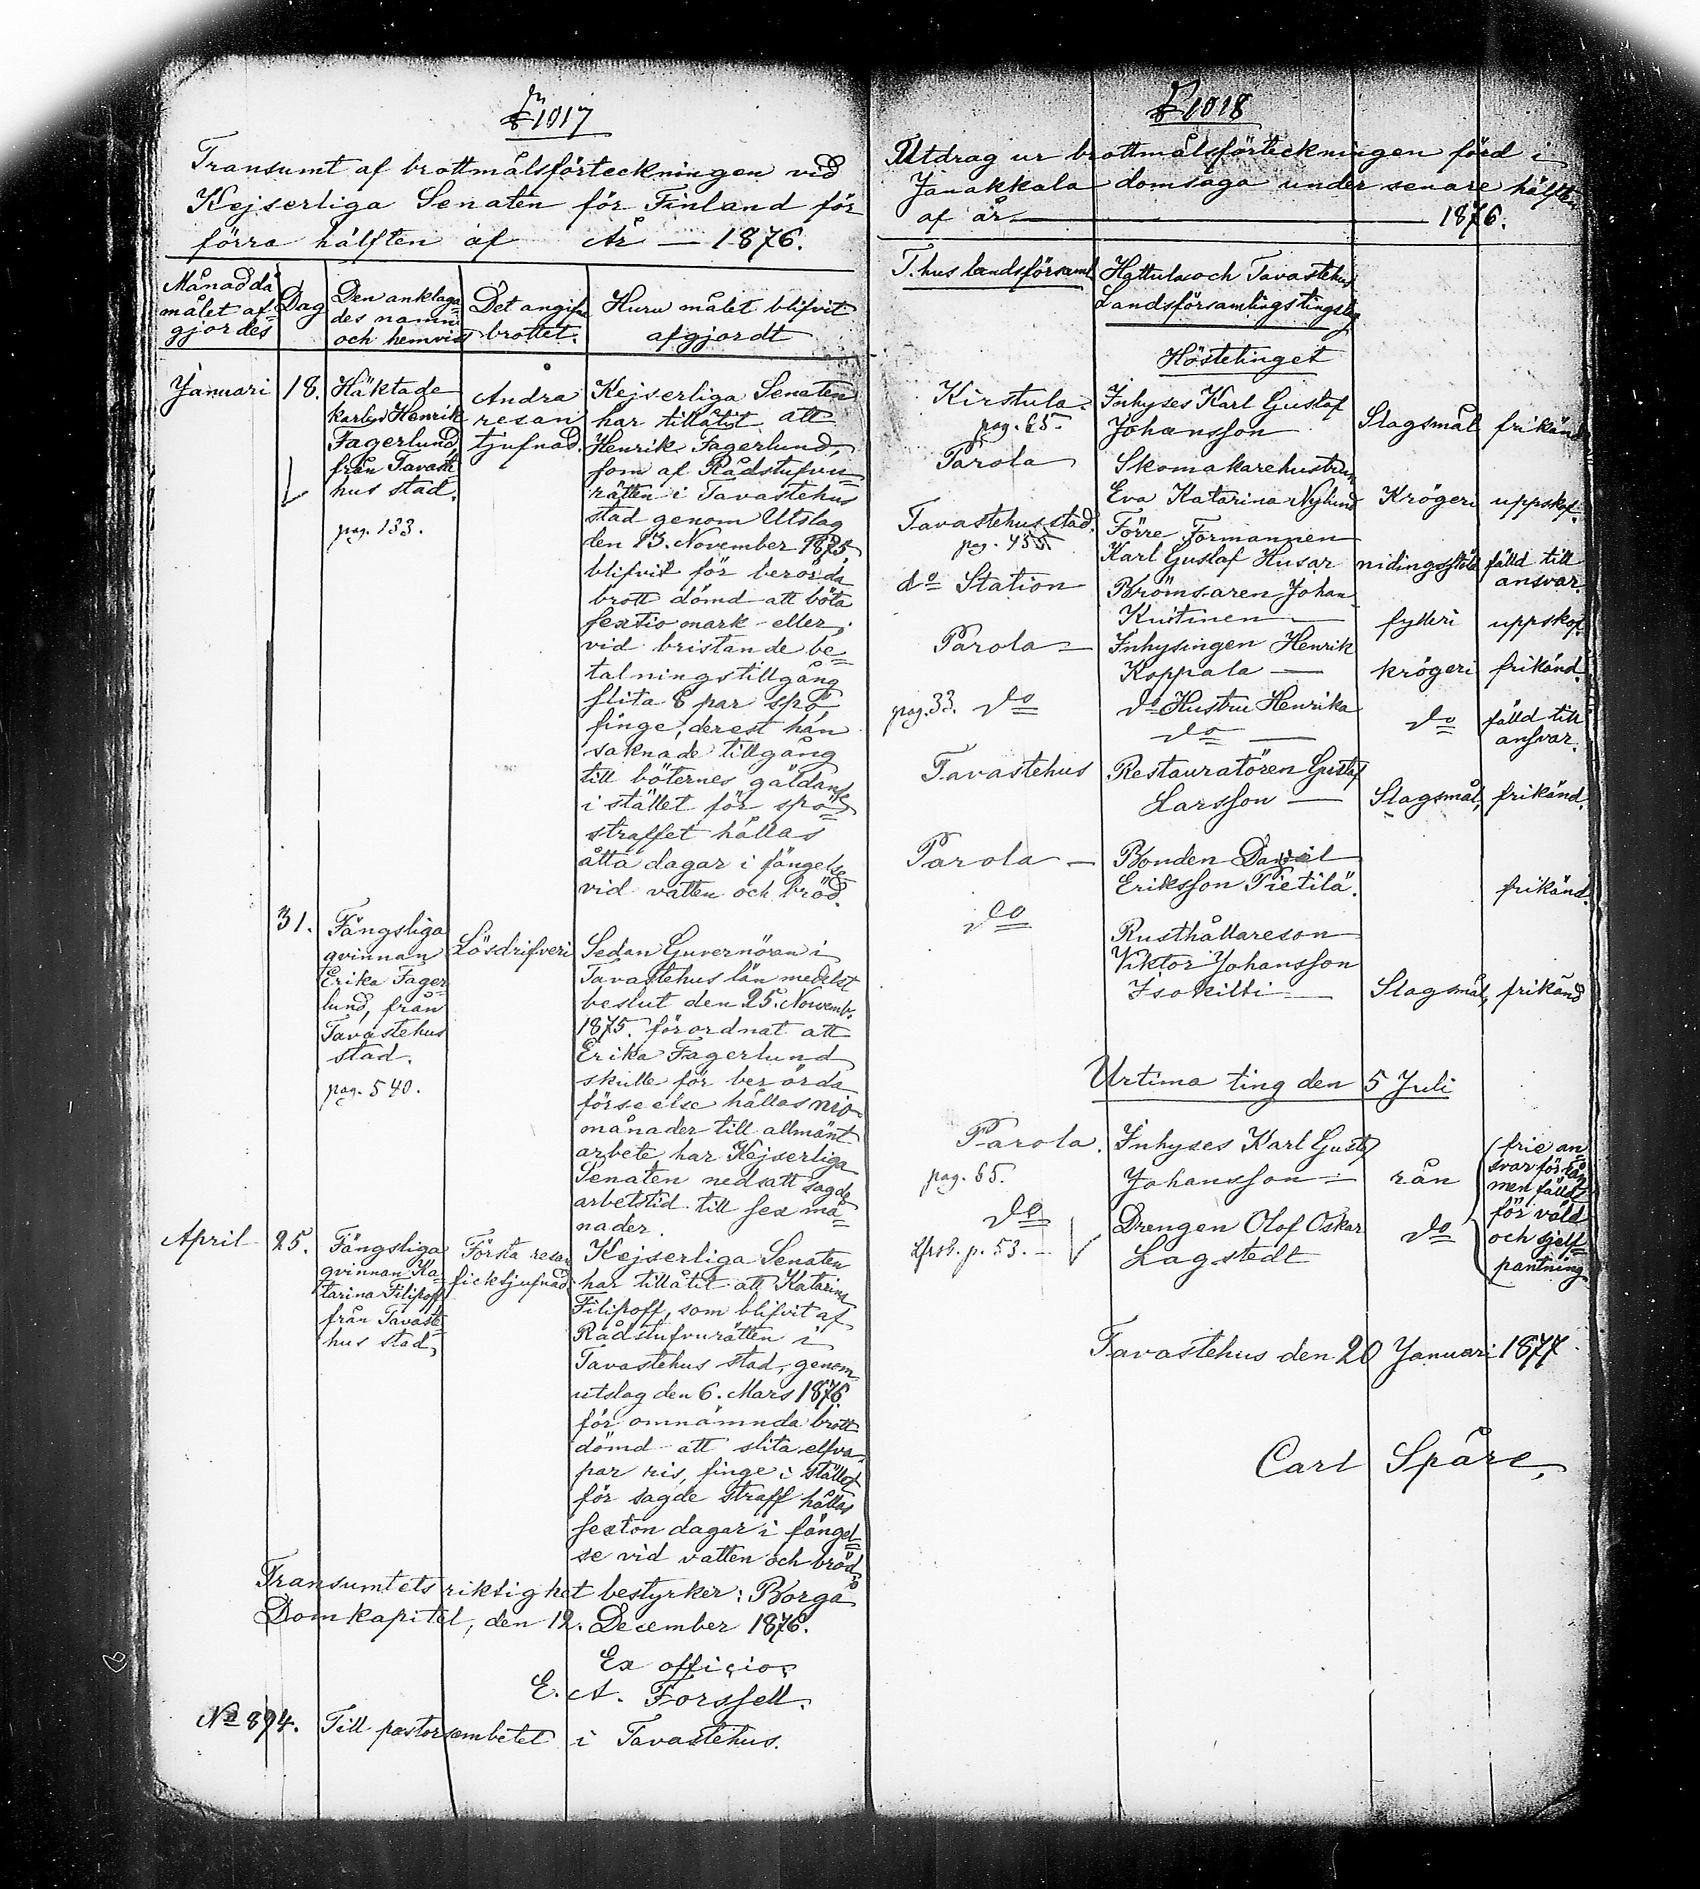 1017
Transumt af brottmålsförteckningen vid
Kejserliga Senaten för Finland för
förra hälften af År — 1876.
Månad då
målet af=
gjordes
Dag
Den anklaga=
des namn
och hemvist
Det angifna
brottet.
Huru målet blifvit
afgjordt
Januari
18.
Häktade
karlen Henrik
Fagerlund,
från Tavaste
hus stad.
pag. 133.
Andra
resan
tjufnad.
Kejserliga Senaten
har tillåtit att
Henrik Fagerlund,
som af Rådstufvu=
rätten i Tavastehus
stad genom Utslag
den 13. November 1875,
blifvit för berörda
brott dömd att böta
sextio mark eller,
vid bristande be=
talningstillgång
slita 8 par spö
finge, derest han
saknade tillgång
till böternes gäldande
i stället för spö=
straffet hållas
åtta dagar i fängelse
vid vatten och bröd.
31.
Fängsliga
qvinnan
Erika Fager=
lund, från
Tavastehus
stad.
pag. 540.
Lösdrifveri
Sedan Guvernören i
Tavastehus län medelst
beslut den 25. Novemb.
1875. förordnat att
Erika Fagerlund
skulle för berörda
förseelse hållas nio
månader till allmänt
arbete, har Kejserliga
Senaten nedsatt sagde
arbetstid till sex må=
nader.
April
25.
Fängsliga
qvinnan Ka=
tarina Filipoff
från Tavaste=
hus stad,
Första resan
ficktjufnad
Kejserliga Senaten
har tillåtit att Katarina
Filipoff, som blifvit af
Rådstufvurätten i
Tavastehus stad, genom
utslag den 6. Mars 1876.
för omnämnda brott
dömd att slita elfva
par ris, finge i stället
för sagde straff hållas
sexton dagar i fängel=
se vid vatten och bröd.
Transumtets riktighet bestyrker: Borgå
Domkapitel, den 12. December 1876.
Ex officio:
E. A. Forssell.
No 894. Till pastorsembetet i Tavastehus.
1018
Utdrag ur brottmålsförteckningen förd i
Janakkala domsaga under senare hälften
af år — 1876.
T.hus landsförsaml
Hattula och Tavastehus
Landsförsamlingstingslag
Hösttetinget
Kirstula.
pag. 65.
Inhyses Karl Gustaf
Johansson
Slagsmål
frikänd
Parola
Skomakarehustrun
Eva Katarina Nylund
Krögeri
uppskof.
Tavastehus stad.
Förre Formannen
Karl Gustaf Husar
nidingsstöld
fälld till
ansvar.
do Station
Brömsaren Johan
Kustinen —
fylleri
uppskof.
Parola =
Inhysingen Henrik
Koppala —
krögeri
frikänd.
pag. 33. do
do Hustru Henrika
do —
do
fälld till
ansvar.
Tavastehus
Restauratören Gustaf
Larsson —
Slagsmål,
frikänd.
Parola —
Bonden Daniel
Eriksson Pietilä.
frikänd.
do
Rusthållareson
Viktor Johansson
Isokilti —
Slagsmål,
frikänd
Urtima ting den 5 Juli
Parola.
pag. 65.
Inhyses Karl Gustaf
Johansson —
rån
do
p. 53. —
Drengen Olof Oskar
Lagstedt
do
frie an=
svar för rån
men fälld
för våld
och sjelf=
pantning
Tavastehus den 20 Januari 1877
Carl Spåre,